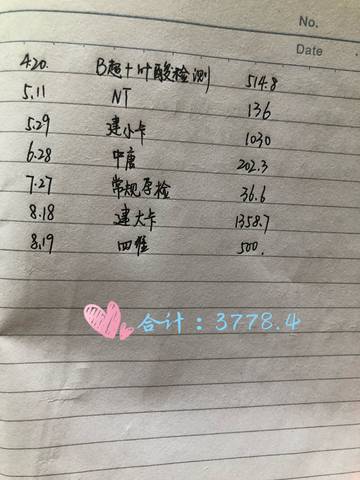 No.
Date
4.20. B超+叶酸检测 514.8
5.11 NT 136
5.29 建小卡 1030
6.28 中唐 202.3
7.27 常规孕检 36.6
8.18 建大卡 1358.7
8.19 四维 500.
合计：3778.4